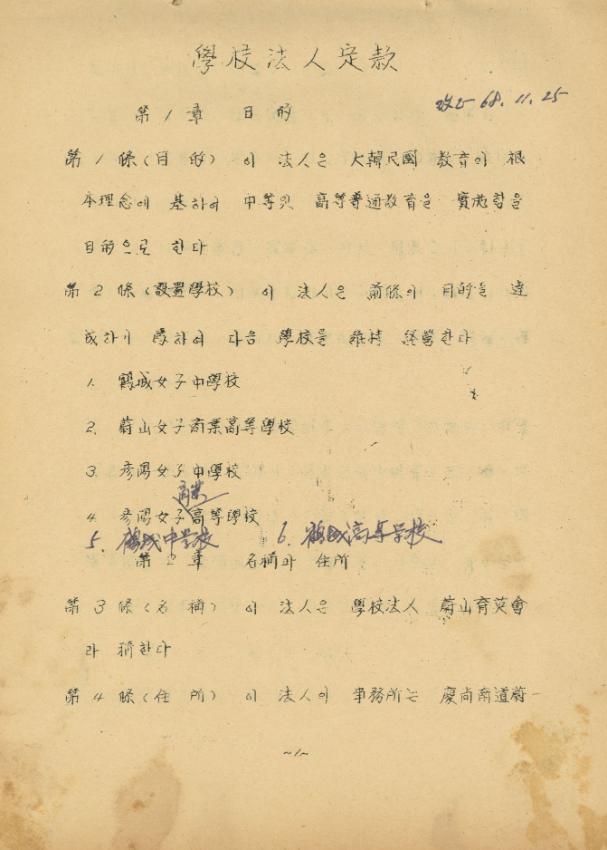 學校法人定款
改正 68. 11. 25
第 1 章 目 的
第 1 條 (目 的) 이 法人은 大韓民國 敎育의 根
本理念에 基하여 中等 및 高等普通敎育을 實施함을
目的으로 한다
第 2 條 (設置學校) 이 法人은 前條의 目的을 達
成하기 爲하여 다음 學校를 維持 經營한다
1. 鶴城女子中學校
2. 蔚山女子商業高等學校
3. 彦陽女子中學校
商業
4. 彦陽女子高等學校
5. 鶴城中学校 6. 鶴城高等学校
第 2 章 名稱과 住所
第 3 條 (名 稱) 이 法人은 學校法人 蔚山育英會
라 稱한다
第 4 條 (住 所) 이 法人의 事務所는 慶尚南道蔚
~1~